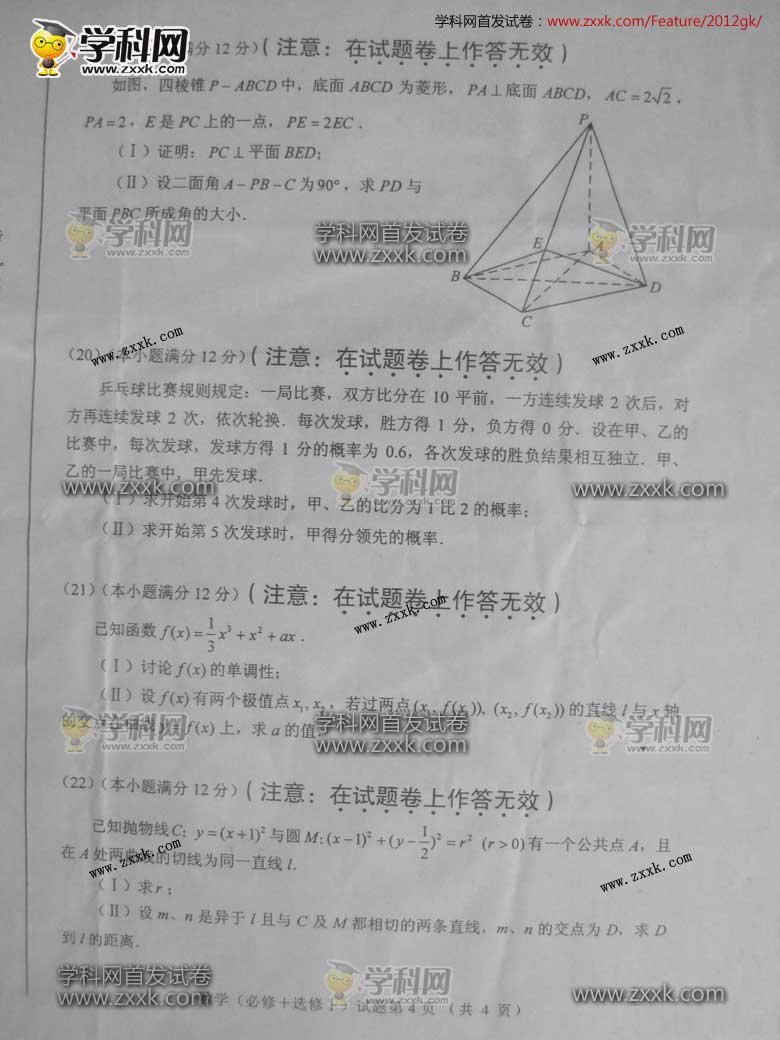 学科网首发试卷：www.zxxk.com/Feature/2012gk/
学科网
www.zxxk.com
满分 12 分）（注意：在试题卷上作答无效）
如图，四棱锥 P－ABCD 中，底面 ABCD 为菱形，PA⊥底面 ABCD，AC＝2√2，
PA＝2，E 是 PC 上的一点，PE＝2EC．
（Ⅰ）证明：PC⊥平面 BED；
（Ⅱ）设二面角 A－PB－C 为 90°，求 PD 与
平面 PBC 所成角的大小．
P
E
A
B
D
C
学科网
www.zxxk.com
学科网首发试卷
www.zxxk.com
学科网
www.zxxk.com
www.zxxk.com
www.zxxk.com
（20）（本小题满分 12 分）（注意：在试题卷上作答无效）
乒乓球比赛规则规定：一局比赛，双方比分在 10 平前，一方连续发球 2 次后，对
方再连续发球 2 次，依次轮换．每次发球，胜方得 1 分，负方得 0 分．设在甲、乙的
比赛中，每次发球，发球方得 1 分的概率为 0.6，各次发球的胜负结果相互独立．甲、
乙的一局比赛中，甲先发球．
学科网首发试卷
www.zxxk.com
学科网
www.zxxk.com
www.zxxk.com
（Ⅰ）求开始第 4 次发球时，甲、乙的比分为 1 比 2 的概率；
（Ⅱ）求开始第 5 次发球时，甲得分领先的概率．
（21）（本小题满分 12 分）（注意：在试题卷上作答无效）
www.zxxk.com
已知函数 f(x)＝1/3x³＋x²＋ax．
（Ⅰ）讨论 f(x) 的单调性；
（Ⅱ）设 f(x) 有两个极值点 x₁, x₂，若过两点 (x₁, f(x₁)), (x₂, f(x₂)) 的直线 l 与 x 轴
的交点在曲线 y＝f(x) 上，求 a 的值．
学科网
www.zxxk.com
学科网首发试卷
www.zxxk.com
学科网
www.zxxk.com
（22）（本小题满分 12 分）（注意：在试题卷上作答无效）
已知抛物线 C：y＝(x＋1)² 与圆 M：(x－1)²＋(y－1/2)²＝r² (r＞0) 有一个公共点 A，且
在 A 处两曲线的切线为同一直线 l．
www.zxxk.com
www.zxxk.com
（Ⅰ）求 r；
（Ⅱ）设 m、n 是异于 l 且与 C 及 M 都相切的两条直线，m、n 的交点为 D，求 D
到 l 的距离．
学科网首发试卷
www.zxxk.com
学科网
www.zxxk.com
学科网首发试卷
www.zxxk.com
学（必修＋选修Ⅰ）试题第 4 页 （共 4 页）